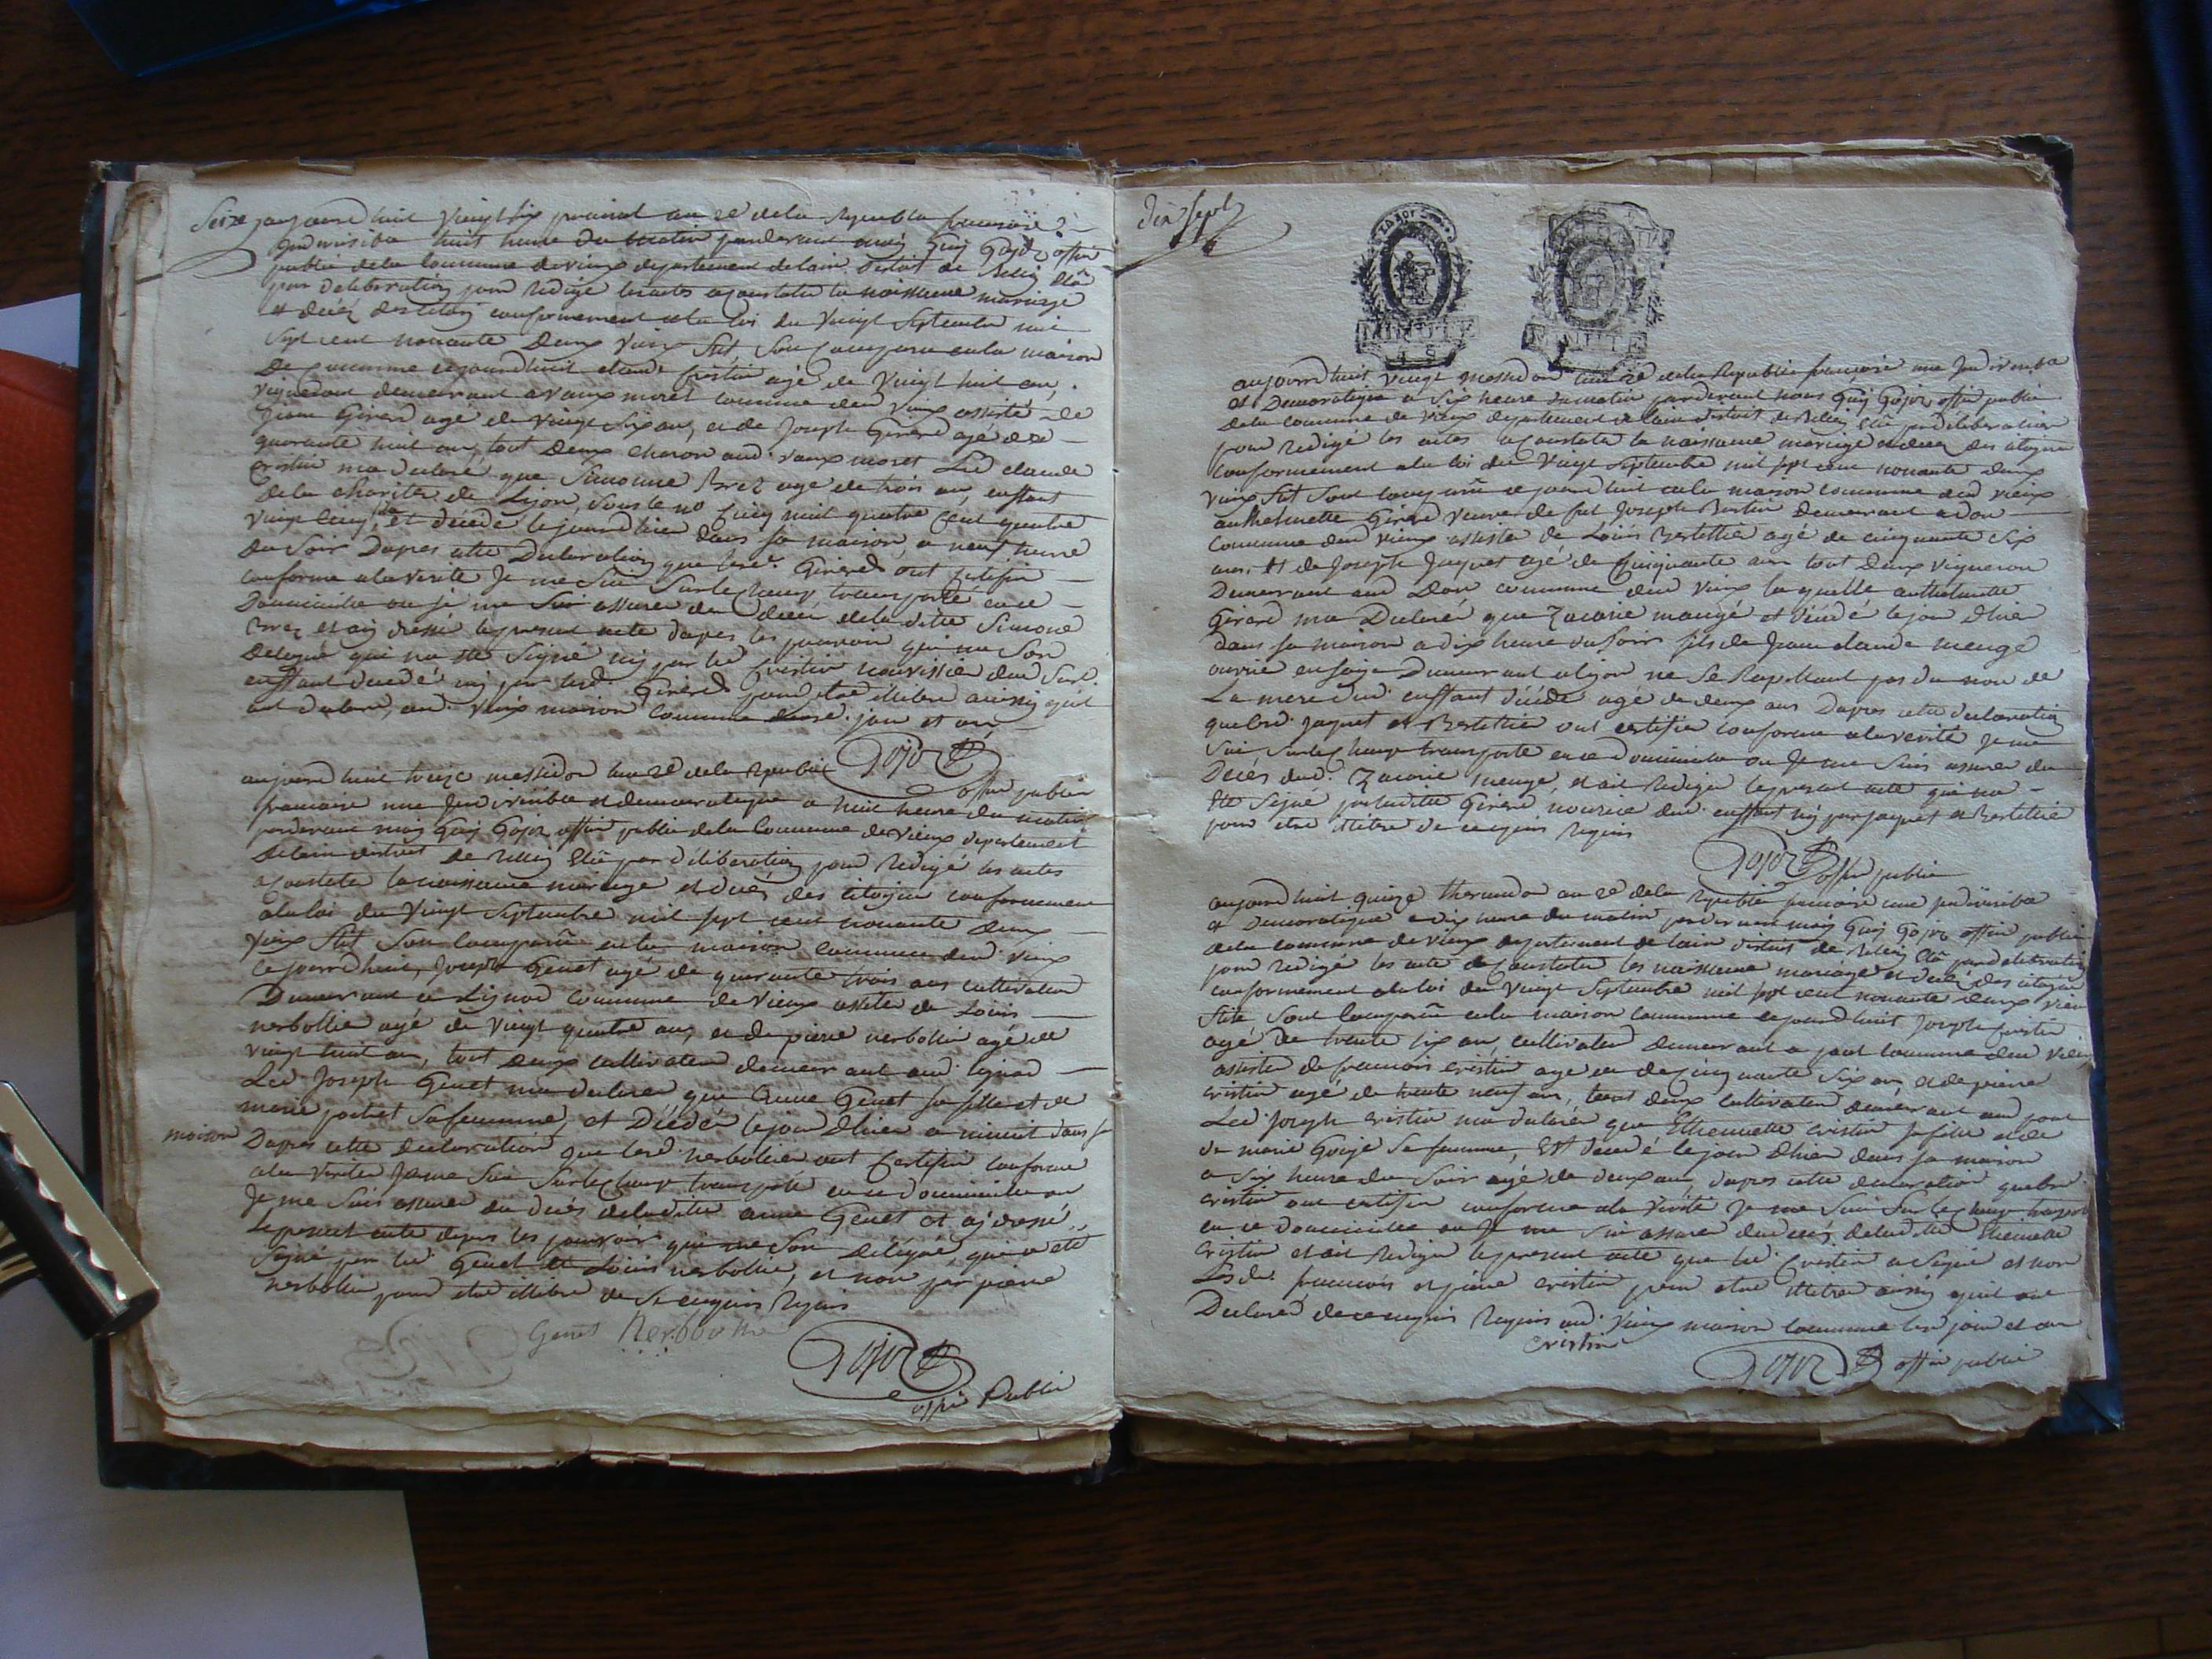 Seize
aujourdhuit Vingt six prairial an 2e dela Republi francoise
Indivisible huit heure du matin pardevant moÿ Guÿ Gojoz offier
public dela Commune de vieux departement delain distrit de Belleÿ Elû
par deliberation pour Redigé les actes a Constater la naissance mariage
et décéz des citoÿ conformement ala loi du Vingt Septembre mil
Sept cent nonante deux vieux Stil Son Comparu en la maison
De Commune cejourdhuit claude Cristin agé de Vingt huit an,
vigneron demeurant a vaux moret Commune dud Vieux assisté de
Jean Girerd agé de Vingt Six ans et de Joseph Girerd agé de
quarante huit ans tout deux charon aud vaux moret Led claude
Cristin ma declaré que Simonne Brez agé de trois an, enffant
Dela charitée de Lyon, Sous le no Cinq mil quatre Cent quatre
Vingt Cinq, et décédé le jourdhier dans sa maison, a neuf heure
Du Soir Dapres cette Declaration que lesd. Girerd ont Certifié
Conforme ala verité Je me Sui Surlechamp transporté en ce
Domicile ou je me Sui assurer du décéz deladitte Simone
Brez et aÿ dressé lepresent acte dapres les pouvoir qui me Son
Delegué qui na été Signé nÿ par led Cristin nourissié dud Sud.
enffant décédé nÿ par lesd. Girerd pour etre illitéré ainssÿ quil
ont declaré, aud. Vieux maison Commune lesd. jour et an
Gojoz
offier public
aujourdhuit treize messidor lan 2e dela Republi
francaise une Indivisible et democratique a huit heure du matin
pardevant moÿ Guÿ Gojoz offier public dela Commune de vieux departement
Delain distrit de Belleÿ Elû par déliberation pour Redigé les actes
a Constater la naissance mariage et décéz des citoÿen conformement
ala loi du Vingt Septembre mil sept cent nonante deux
Vieux Stil Son Comparû en la maison commune dud Vieux
Cejourdhuit, Joseph Genet agé de quarante trois ans cultivateur
Demeurant a Lignod Commune de Vieux assisté de Louis
nerbollié agé de Vingt quatre ans, et de pierre nerbollié agé de
Vingt huit an, tout deux cultivateur demeurant aud lignod
Led Joseph Genet ma déclaré que Anne Genet sa fille et de
marie jantet Sa femme, et Décédé lejour Dhier a minuit dans sa
maison Dapres cette declaration que lesd. nerbollié ont Certifié Conforme
ala Verité Jeme Sui Surlechamp transporté en ce domicile ou
Je me Suis assurer du décés deladitte anne Genet et aÿ dressé
Lepresent acte dapres les pouvoir qui me Son Délégué, qui a été
Signé par led Genet et Louis nerbollié, et non par pierre
nerbollié pour etre illitéré de Ce enquis Requis
Genet Nerbollié
Gojoz
offié Public
Dix sept
MINUTE
MINUTE
aujourdhuit Vingt messidor lan 2e dela Republi francoise une Indivisible
et Democratique a Six heure du matin pardevant nous Guÿ Gojoz offier public
Dela Commune de vieux departement de lain distrit de Belleÿ Elû par deliberation
pour Redigé les actes a Constater la naissance mariage et decéz des citoyen
Conformement ala loi du Vingt Septembre mil sept cent nonante deux
Vieux Stil Sont Comparuë cejourdhuit en la maison Commune dud vieux
anthelmette Girerd Veuve de fut Joseph Bertin Demeurant a Don
Commune dud Vieux assisté de Louis Bertettié agé de cinquante six
ans, et de Joseph Jaquet agé de Cinquante an tout deux Vigneron
Demeurant aud Don commune dud Vieux laquelle anthelmette
Girerd ma Déclaré que Zacarie mangé et décédé le jour dhier
dans sa maison a dix heure du Soir fils de Jean claude menge
ouvrié en Soie Demeurant a lÿon ne Se Rapellant pas du non de
La mere dud enffant décédé agé de deux ans Dapres cette declaration
quelesd. Jaquet et Bertettié ont certifié Conforme ala verité Jeme
Sui Surlechamp transporté en ce Domicile ou Je me Suis assurer du
Décés dud. Zacarie menge, et aië Rediger lepresent acte qui na
été Signé par laditte Girerd nourice dud enffant nÿ par jaquet et Bertettié
pour etre illitéré de ce enquis Requis
Gojoz offié public
aujourdhuit quinze thermidor an 2e dela Republi francoise une indivisible
et Democratique a dix heure du matin pardevant moÿ Guÿ Gojoz offier public
dela commune de vieux departement de lain distrit de Belleÿ Elû par deliberation
pour Redigé les acte a Constater les naissance mariage et décéz des citoyen
conformement ala loi du Vingt Septembre mil sept cent nonante deux vieux
Stile Sont Comparû en la maison Commune cejourdhuit Joseph Cristin
agé de trente six an, cultivateur demeurant a pont Commune dud Vieux
assisté de francois cristin agé de Cinquante Six an, et de pierre
cristin agé de trente neuf an, tout deux cultivateur demeurant aud pont
Led. Joseph cristin ma declaré que Etiennette cristin sa fille et de
de marie Gojoz Sa femme, Est décédé le jour dhier dans sa maison
a Six heure du Soir agé de deux an, dapres cette declaration quelesd.
Cristin ont certifié conforme ala Vérité Je me Sui Surlechamp transporté
en ce Domicille ou Je me Sui assurer du décéz deladitte Etiennette
Cristin et aië Rediger lepresent acte que led. Cristin a Signé et non
Lesd. francois et pierre cristin pour etre illitéré ainsÿ quil ont
Déclaré de ce enquis Requis aud. Vieux maison Commune lesd jour et an
Cristin
Gojoz offié public